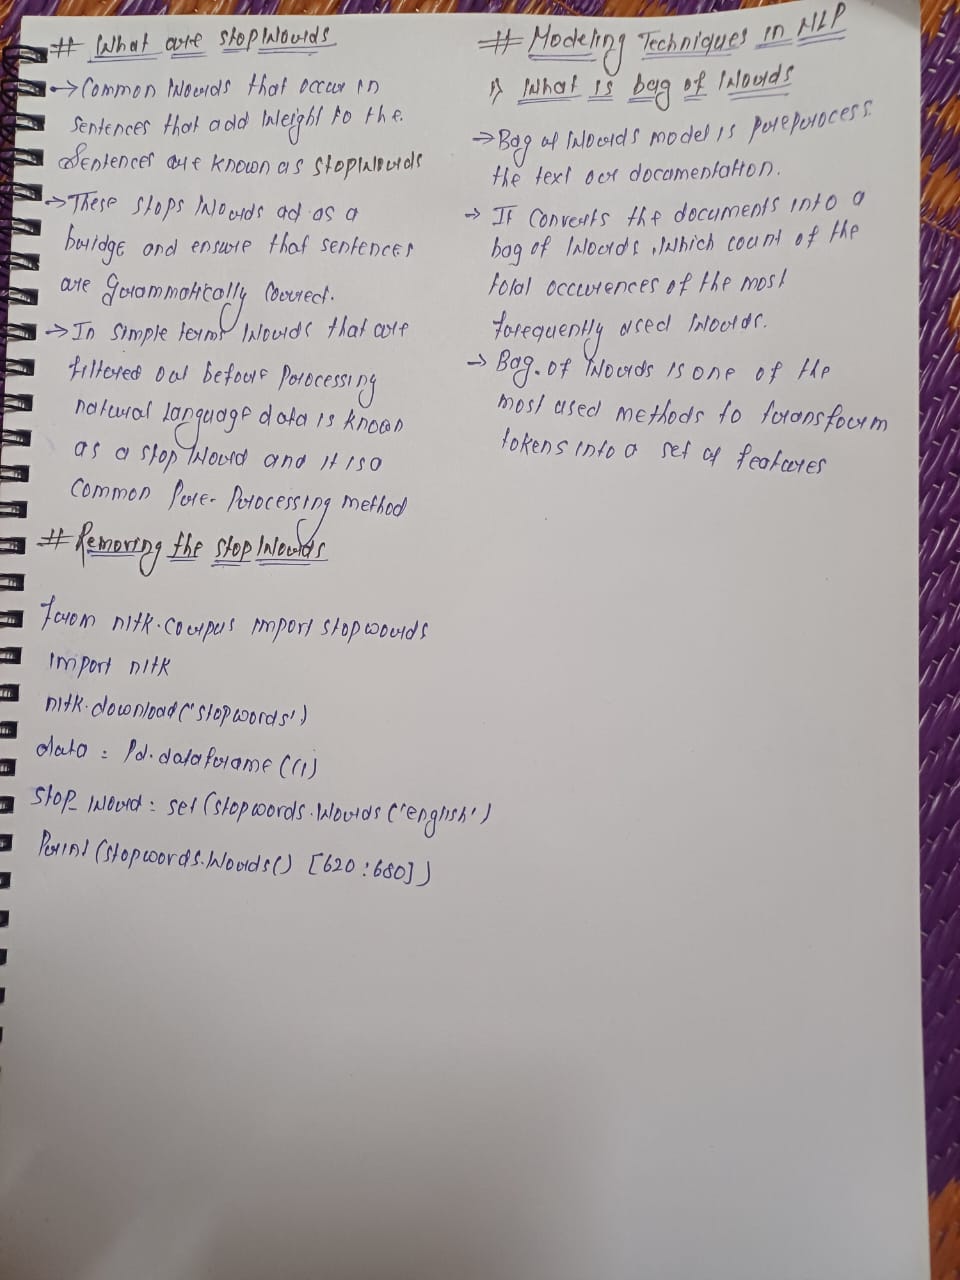 # What are stopwords
→ Common Words that occur in
sentences that add weight to the.
Sentences are known as stopwords
→ These stops words act as a
bridge and ensure that sentences
are grammatically correct.
→ In simple terms words that are
filtered out before processing
natural language data is known
as a stop word and it is a
common pre-processing method
# Removing the stopwords
from nltk.corpus import stopwords
import nltk
nltk.download('stopwords')
data = Pd.dataframe(())
stop_word = set(stopwords.words('english')
Print(stopwords.words() [620:680])
# Modeling Techniques in NLP
1) What is bag of words
→ Bag of words model is preprocess.
the text or documentation.
→ It converts the documents into a
bag of words, which count of the
total occurences of the most
frequently used words.
→ Bag.of words is one of the
most used methods to transform
tokens into a set of features